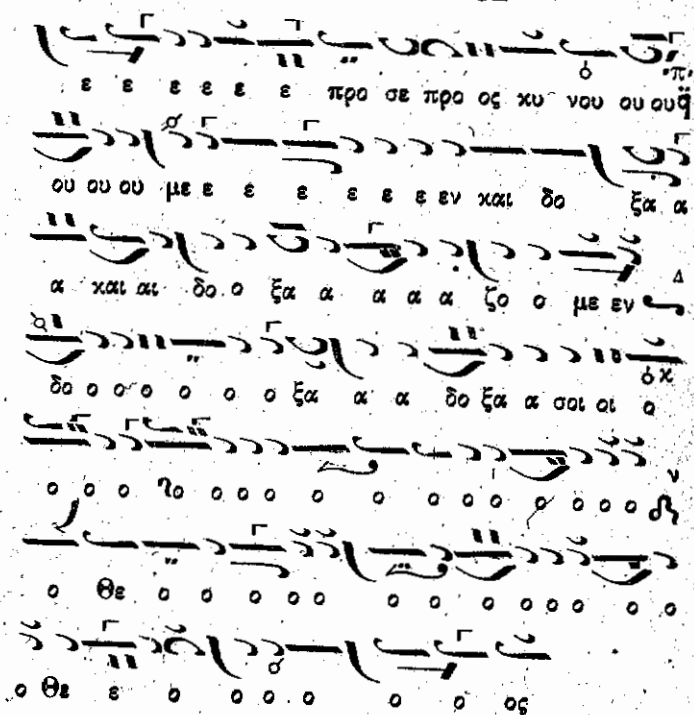 ε ε ε ε ε ε ε προ σε προ ος κυ νου ου ου
ου ου ου με ε ε ε ε ε ε ε εν και δο ξα α
α και αι δο ο ξα α α α α ζο ο με εν
δο ο ο ο ο ο ο ξα α α δο ξα α σοι οι ο
ο ο ο ο ο ο ο ο ο ο ο ο ο ο ο
ο Θε ο ο ο ο ο ο ο ο ο ο ο ο ο
ο Θε ε ο ο ο ο ο ο ο ος